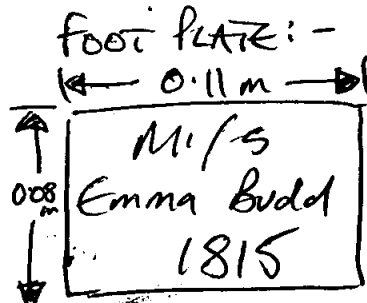 FOOT PLATE: -
0.11 m
0.08 m
M^r/s
Emma Budd
1815